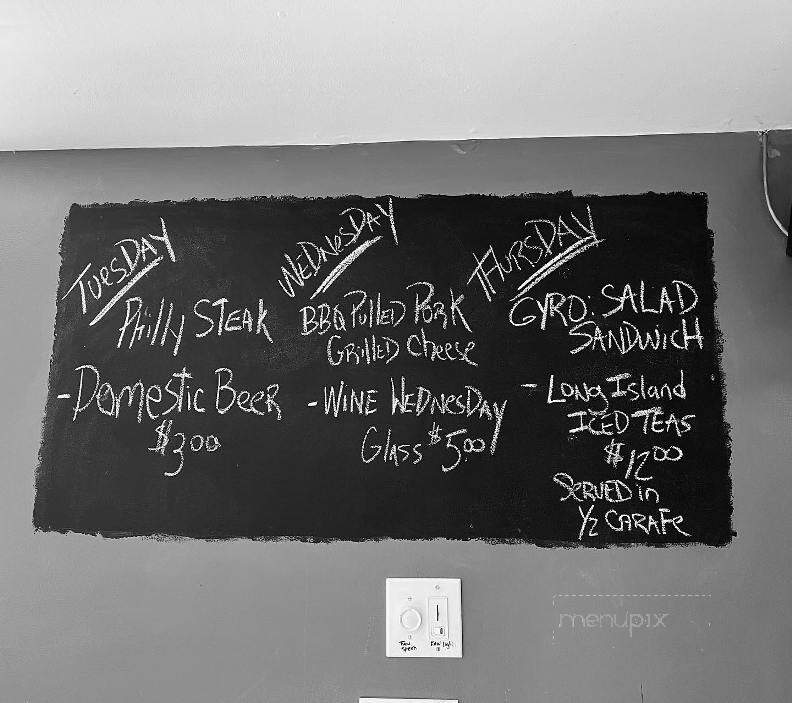 TUESDAY
Philly STEAK
- Domestic Beer
$3.00
WEDNesDAY
BBQ PulleD PoRK
GRilleD Cheese
- WINE WEDNesDAY
Glass $5.00
THURSDAY
GYRO: SALAD
SANDWicH
- LONG Island
ICED TEAS
$12.00
SeRVED in
1/2 CARAFe
Fan
speed
menupix